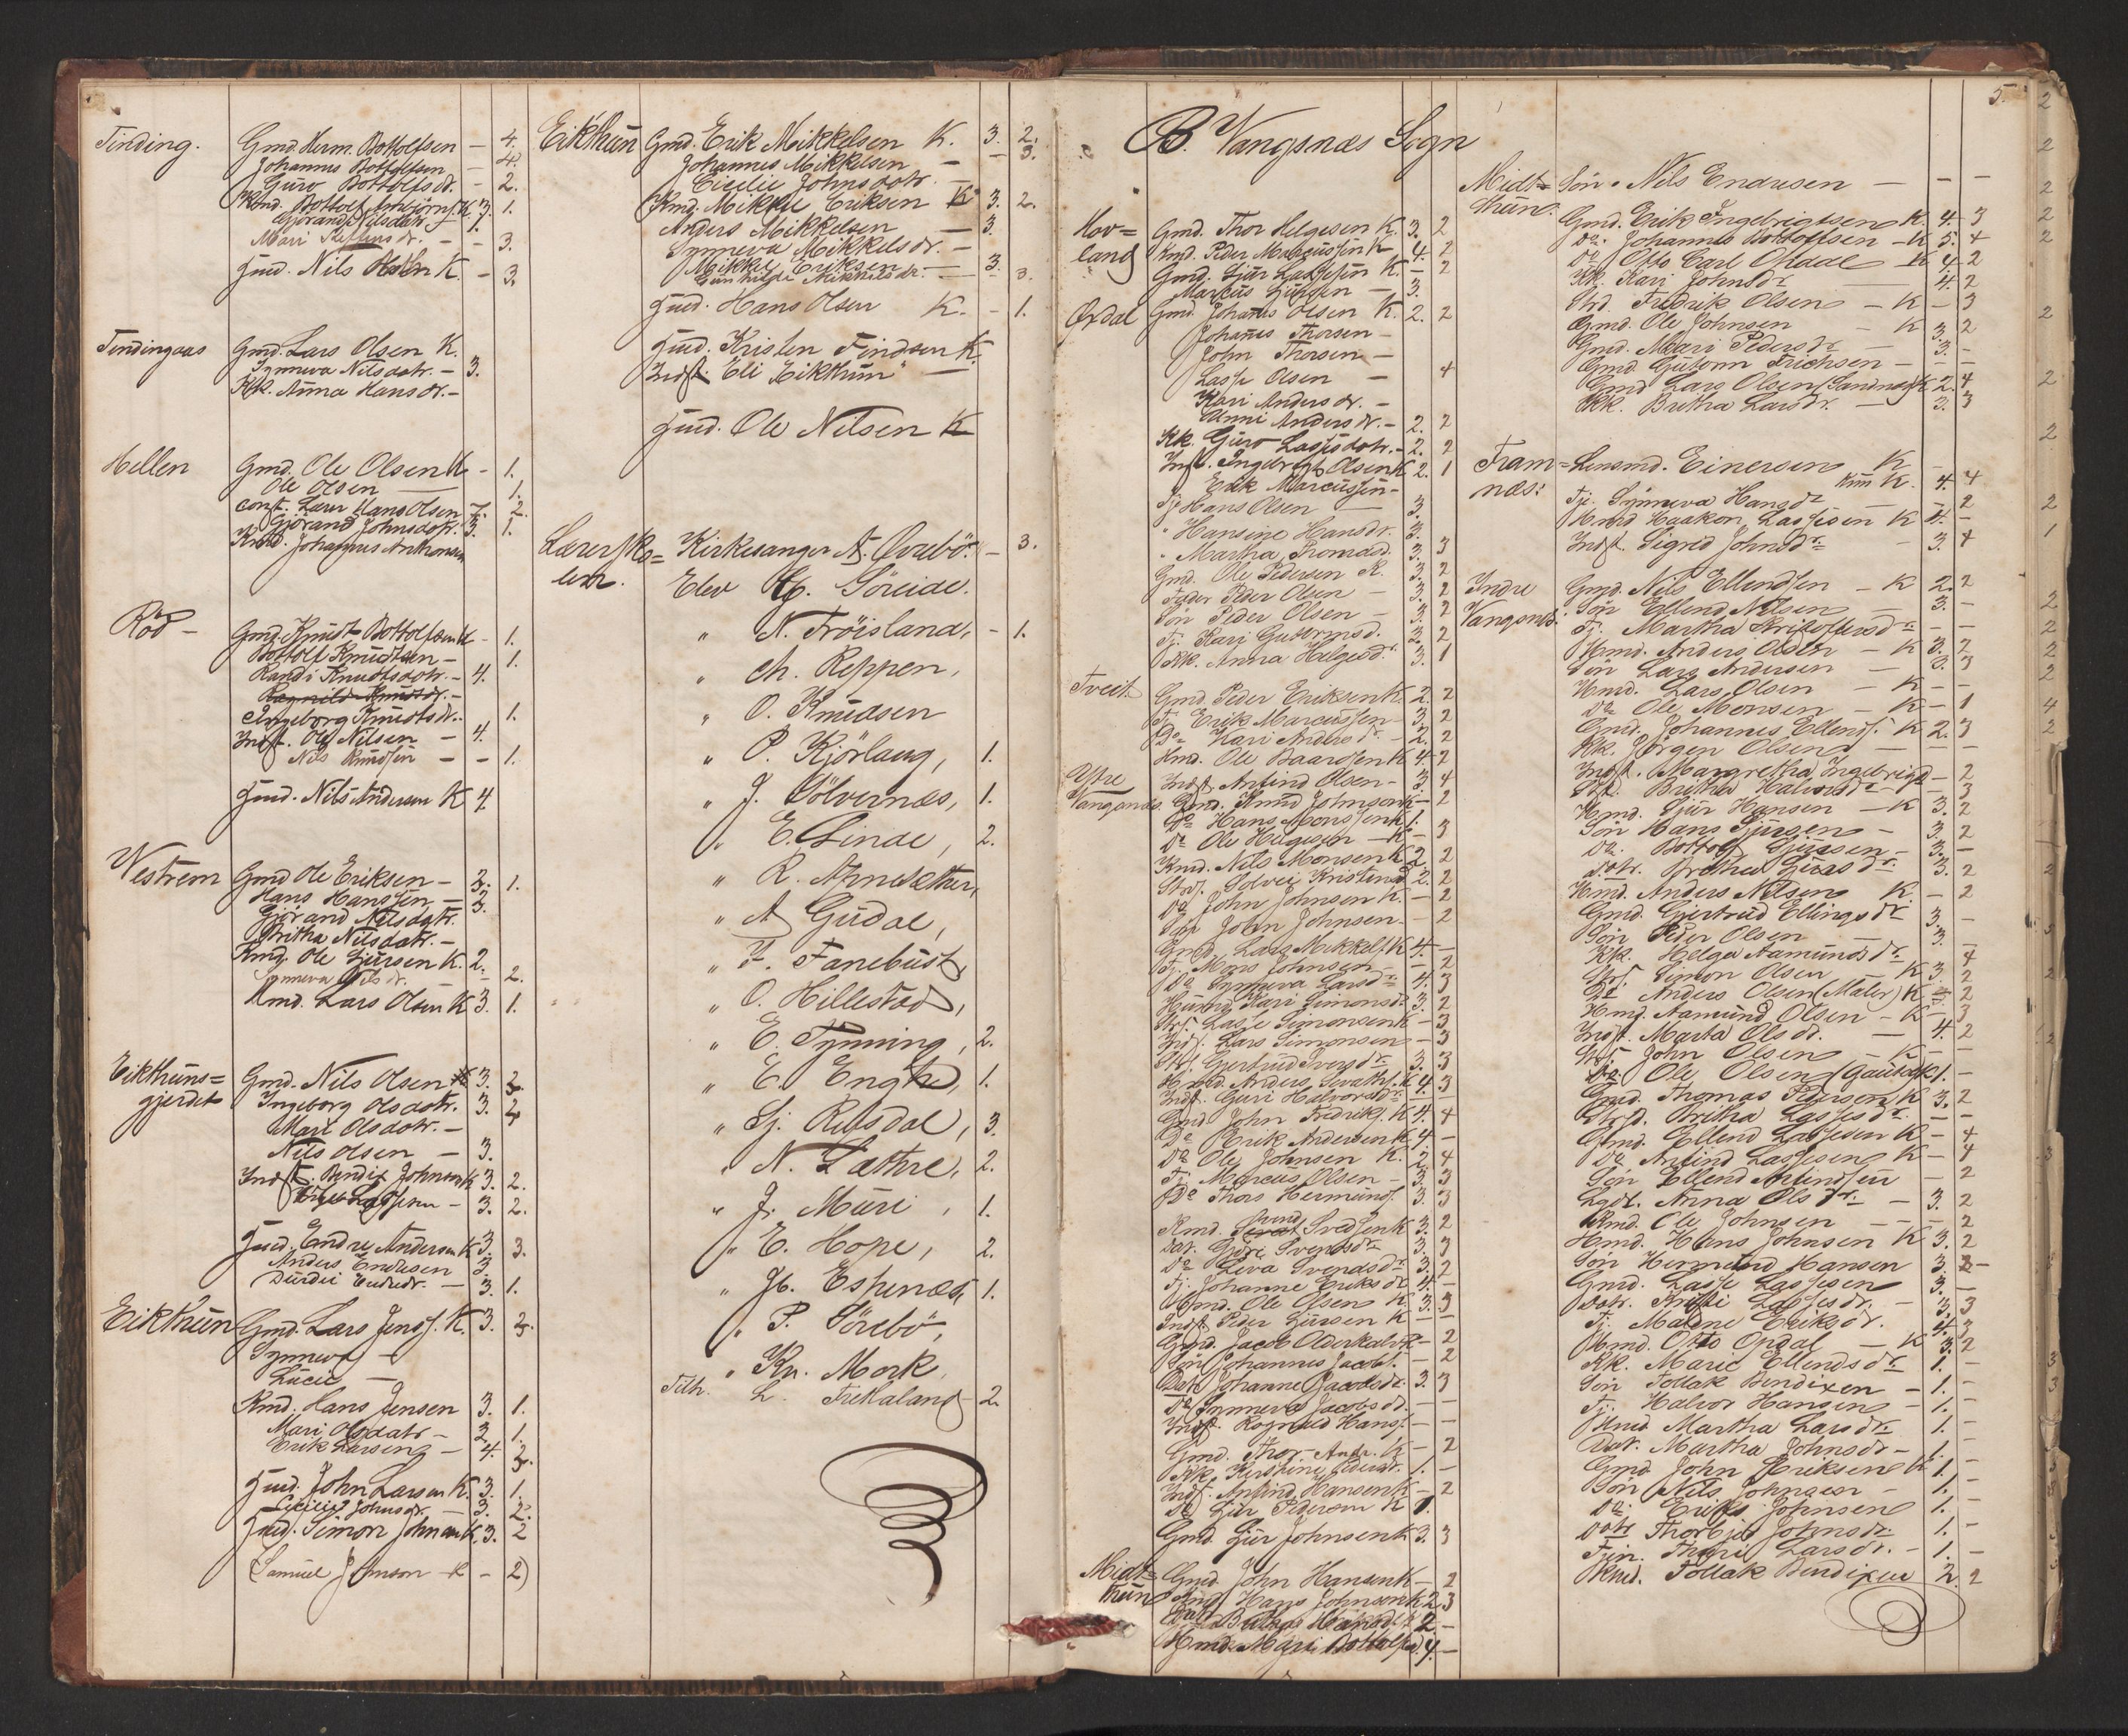 Tinding. Gmd. Herm. Bottolfsen - 4.
Johannes Bottolfsen - 4.
Guro Bottolfsdr. - 2.
Kmd. Bottolf K. 3. 1.
Gjörand Nilsdatr. 1.
Mari - - 3.
Gmd. Nils K. - 3.
Tindingaas Gmd. Lars Olsen K.
Synneva Nilsdatr. - 3.
Kk. Anna Hansdr. -
Hellen Gmd. Ole Olsen K - 1.
Ole Olsen 1.
Const. Lærer Hans Olsen 7. 2.
Gjörand Johnsdatr. 3. 1.
Kmd. Johannes Anthonsen
Röd - Gmd. Knudt Bottolfsen K - 1.
Bottolf Knudtsen - 1.
Randi Knudtsdatr. - 4.
Ragnild Knudtsdr. -
Ingeborg Knudtsdr. 1.
Indst. Ole Nilsen - 4.
Nils Knudsen - - 1.
Gmd. Nils Andersen K 4.
Westrem Gmd Ole Eriksen - 3. 1.
Hans Hanssen - 3.
Gjörand Nilsdatr.
Britha Nilsdatr. -
Kmd. Ole Sjursen K. 2.
Synneva Nilsdr. - 2.
Kmd. Lars Olsen K 3. 1.
Eikthuns= Gmd. Nils Olsen K 3. 2
gjerdet Ingeborg Olsdatr. 3. 2
Mari Olsdatr. -
Nils Olsen - 3.
Indst. Bendix Johnsen K 3. 2.
Lassesen - 3. 2.
Gmd. Endre Andersen K 3. 3.
Anders Endresen 3.
Durdei Endredr. - 3. 1.
Eikthun Gmd. Lars Jens. K. 3. 2.
Synneva -
Lucie -
Kmd. Hans Jensen 3. 1.
Mari Olsdatr - 3. 1.
Erik Larsen - 4. 3.
Gmd. John Larsen K. 3. 1.
Cecilie Johnsdr. 3. 2.
Gmd. Simon Johnsen K. 3. 2
(Samuel Johnson K - 2)
Eikthun Gmd. Erik Mikkelsen K. 3. 2.
Johannes Mikkelsen - - 3.
Cicilie Johnsdatr. -
Kmd. Mikkel Eriksen K 3. 2.
Anders Mikkelsen - 3.
Synneva Mikkelsdr. -
Mikkel Eriksen - 3.
Gunhilde Mikkelsdr. - 3.
Gmd. Hans Olsen K. - 1.
Gmd. Kristen Findsen K.
Indst. Eli Eikthun -
Gmd. Ole Nilsen K
Lærersko= Kirkesanger A. Övrebö. - 3.
len. Elev G. Söreide.
" N. Fröisland, - 1.
" Ch. Reppen,
" O. Knudsen
" P. Kjörlaug, 1.
" J. Sölvernæs, 1.
" E. Linde, 2.
" R. Arnesæther,
" A Gudal,
" F. Fanebust,
" O. Hillestad,
" E. Tynning, 2.
" E. Enghe, 1.
" Sj. Refsdal, 3.
" N. Læthre, 2.
" J. Muri, 1.
" E. Hope, 2.
" Jb. Espenæs, 1.
" P. Sörebö,
" Kn. Mork,
Tilh. L. Trekaland 2.
B. Vangsnæs Sogn
Hov= Gmd. Thor Helgesen K. 3. 2
land Kmd. Peder Marcussen K 4. 2
Gmd. Sjur Lassesen K. - 2
Marcus Sjursen - 3.
Ordal Gmd. Johans Olsen K. 2. 2
Johanes Thorsen -
John Thorsen -
Lasse Olsen - 4
Kari Andersdr. -
Unni Andersdr. - 2. 2
Kk. Guro Lassesdatr. - 2. 2
Inst. Ingebrigt Olsen K 2. 1
Erik Marcussen -
Tj Hans Olsen 3.
" Hansine Hansdr. 3.
" Martha 3. 3
Gmd. Ole Pedersen K. 3. 2
Fader Peder Olsen - 3. 2
Sön Peder Olsen - 3. 2
Tj. Kari Guttormsd. 3. 2
Kk. Anna Helgesdr. 3. 1
Tveit Gmd Peder Eriksen K. 2. 2
Tj. Erik Marcussen - 3. 2
Do Kari Andersdr. - 2. 2
Hmd. Ole Baardsen K 4. 2
Indst Anfind Olsen - 3. 4
Ytre Gmd. Knud Johnsen K - 2
Vangsnæs. Do Hans Monssen K 1.
Do Ole Helgesen - K - 3
Kmd. Nils Monsen K 2. 2
Solvei Kristensd 2. 2
Do John Johnsen K. - 2
Sön John Johnsen - - 2
Gmd. Lars Mikkels. K 4. -
Tj. Mons Johnsen - - 2
Do Synneva Larsdr 4. 3
Kari Simonsdr 3. 2
Lasse Simonsen K - 3
Indst. Lars Simonsen - 3
Gjertrud Iversdr. 3. 3
Hmd. Anders K. 4. 3
Indst. Guri Halvorsdr -
Gmd John Fredriks. K 4. 4
Do Erik Andersen K. 4. -
Do Ole Johnsen K. 2. 4
Tj. Marcus Olsen - 3. 3
Do Thors Hermunds. 3. 3
Kmd. Svend Svedsen K 3. 2
Dat. Gjöre Svendsdr 3. 3
Do Eva Svendsdr. 3. 2
Tj. Johanne Eriksdr 4. -
Gmd. Ole Olsen K. 3. 3
Indst Peder Sjursen K - -
Gmd. Jacob K - 2
Sön Johannes Jacobs. - 2
Dat. Johanne Jacobsdr. 3. 3
Do Synneva Jacobsd. - -
Indst. Rognald Hans. - -
Gmd. Thor Andr. K - 2
Kk. Kirstine Pedersdr. 1. -
Indst. Anfind Hansen K - 2
Do Sjur Pedersen K 1.
Gmd Sjur Johnsen K 3. 3
Midt= Gmd. John Hansen K - 2
thun Hans Johnsen K 2. 3
Britha Hansd. 2. -
Hmd. Mari Bottolfsd. 4. -
5.
Midt= Sön. Nils Endresen - - -
thun. Gmd. Erik Ingebrigtsen K 4. 3
Do. Johannes Bottolfsen - K 5. 4
Do Otto Carl Opdal - K 4. 2
Kk. Kari Johnsdr 4. 2
Std. Fredrik Olsen - K - 3
Gmd. Ole Johnsen - K 3. 2
Gmd. Mari Pedersdr - 3. -
Gmd. Guttorm Erichsen - - -
Gmd Lars Olsen (Sandnes) K 2. 4
Kk. Britha Larsdr. - 3. 3
Fram= Lensmd. Einersen K -
næs: K. 4. 4
Tj. Synneva Hansdr - 2
Hmd Haakon Lassesen K 4. -
Indst. Sigrid Johnsdr - 3. 4
Indre Gmd. Nils Ellendsen - K 2. 2
Vangsnæs. Sön Ellend Nilsen - 3. -
Tj. Martha Kristoffersdr - -
Hmd. Anders Olsen - K 3. 2
Sön Lars Andersen - 3. 3
Hmd. Lars Olsen - K - -
Do Ole Monsen - K - 1
Gmd. Johannes Ellends. K 2. 3
Kk. Jörgen Olsen - - -
Indst. Margretha Ingebrigtd - 2
Britha Halvorsdr - - 3
Hmd. Sjur Hansen - K 3. 2
Sön Hans Sjursen - 3. 2
Do. Bottolf Sjursen - 3. -
Dotr. Brithe Sjursdr. 3. 2
Hmd. Anders Nilsen K. - 2
Gmd. Gjertrud Ellingsdr 3. -
Sön Peder Olsen - 3.
Kk. Helga Aamundsdr - 4
Simon Olsen - K 3. 2
Do Anders Olsen (Maler) K 4. 2
Hmd. Aamund Olsen - K - 3
Indst. Marta Olsd. - 4. 2
John Olsen - K - -
Do Ole Olsen K 1. -
Gmd. Thomas Pedersen K 3. 2
Britha Lassesdr. - -
Gmd. Ellend Lassesen K - 4
Do Anfind Lassesen K - 4
Sön Ellend Anfindsen - 2
Anna Olsdr. - 3. 2
Kmd. Ole Johnsen - - - 2
Hmd. Hans Johnsen K 3. 2
Sön Hermund Hansen 3. 2 -
Gmd. Lasse Lassesen 3. -
Dotr. Kristi Lassesdr. - 3. 3
Tj. Malene Eriksdr. 4. 3
Hmd. Otto Opdal - K 3. 2
Kk. Marie Ellendsdr. 1. -
Sön Tollak Bendixen - 1. -
Tj. Halvor Hansen - 1. -
Martha Larsdr. 1. -
Dat. Martha Johnsdr - 1. -
Gmd John Eriksen K 1. -
Sön Nils Johnsen - 1. -
Do. Erik Johnsen 1. -
Dotr Thorbjör Johnsdr. 1. -
Larsdr. - 1. -
Kmd. Tollak Bendixen 2. 2